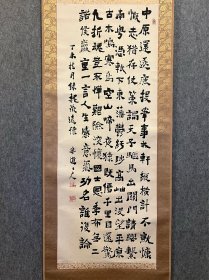 中原還逐鹿投筆事戎軒縱橫計不就慷
慨志猶存杖策謁天子驅馬出關門請纓繫
南粵憑軾下東藩鬱紆陟高岫出沒望平原
古木鳴寒鳥空山啼夜猿既傷千里目還驚
九折魂豈不憚艱險深懷國士恩季布無二
諾侯嬴重一言人生感意氣功名誰復論